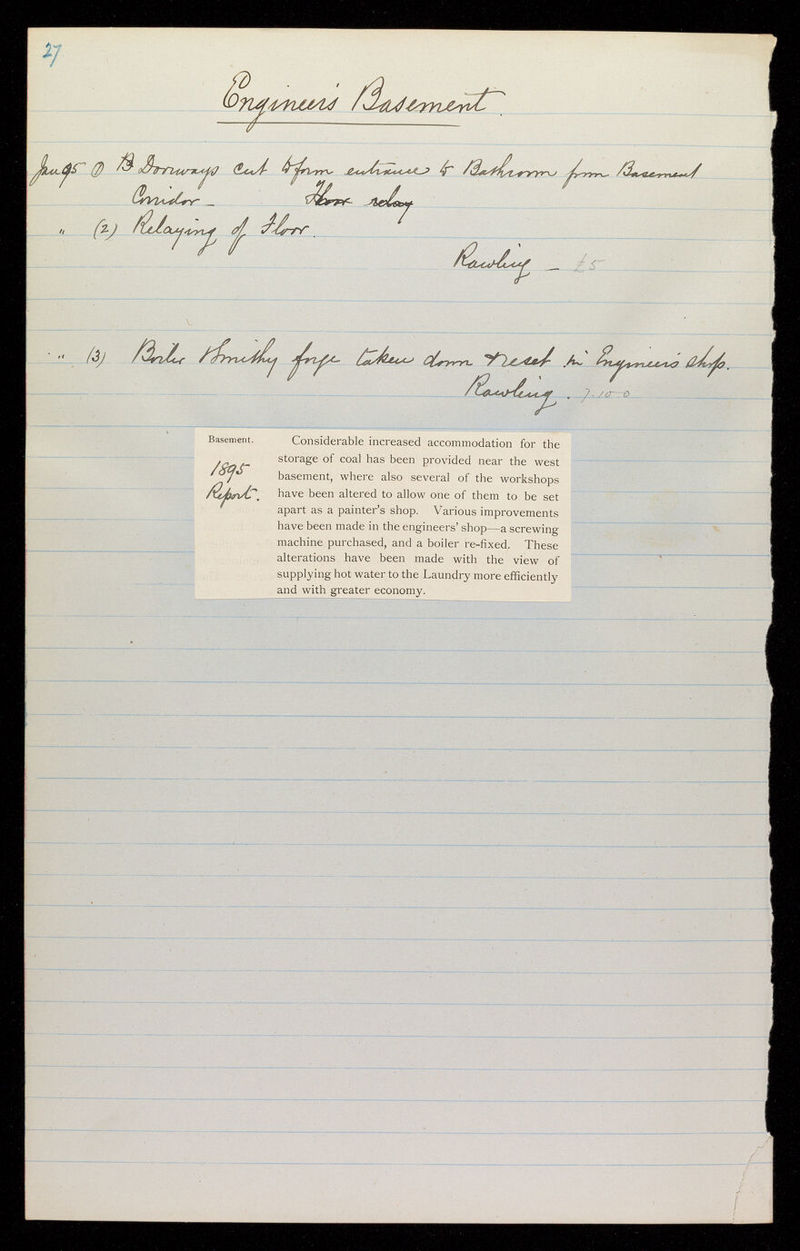 27
Engineers Basement.
Jan 95 (1) Doorways cut to form entrance to Bathroom from Basement
Corridor - Floor relay
" (2) Relaying of Floor.
Rawling - £5
" (3) Boiler & Smithy forge taken down & reset in Engineers shop.
Rawling. 7-10-0
Basement.
1895
Report.
Considerable increased accommodation for the
storage of coal has been provided near the west
basement, where also several of the workshops
have been altered to allow one of them to be set
apart as a painter's shop. Various improvements
have been made in the engineers' shop—a screwing
machine purchased, and a boiler re-fixed. These
alterations have been made with the view of
supplying hot water to the Laundry more efficiently
and with greater economy.